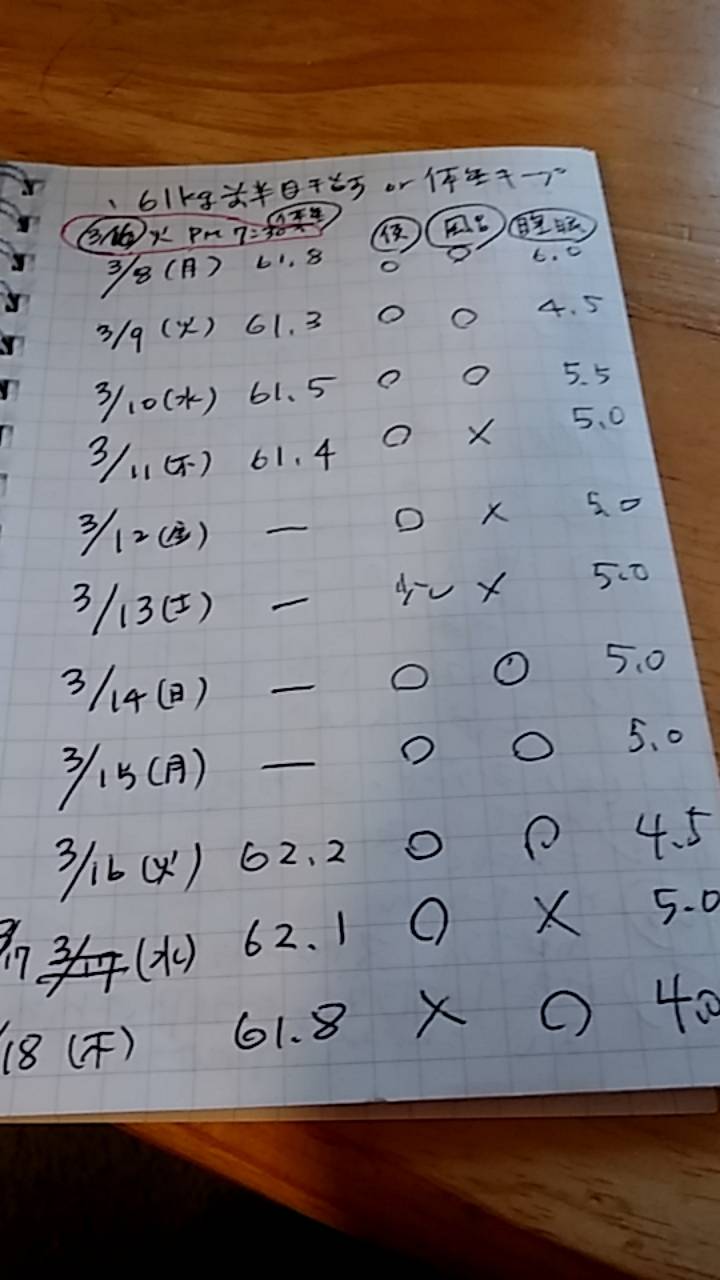 61kg 前半目干す or 体重キープ
3/16 火 PM 7:30 体重 便 風呂 睡眠
3/8 (月) 61.8 ○ ○ 6.0
3/9 (火) 61.3 ○ ○ 4.5
3/10 (水) 61.5 ○ ○ 5.5
3/11 (木) 61.4 ○ × 5.0
3/12 (金) — ○ × 5.0
3/13 (土) — 少し × 5.0
3/14 (日) — ○ ○ 5.0
3/15 (月) — ○ ○ 5.0
3/16 (火) 62.2 ○ ○ 4.5
3/17 3/17 (水) 62.1 ○ × 5.0
/18 (木) 61.8 × ○ 4.0